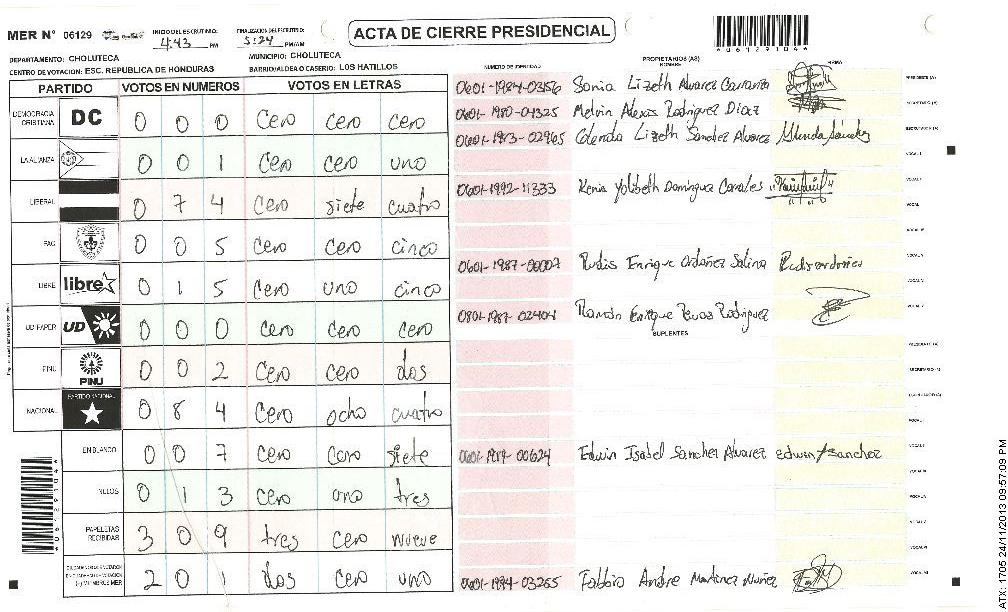 MER N° 06129
INICIO DEL ESCRUTINIO: 4:43 PM
FINALIZACION DEL ESCRUTINIO: 5:24 PM/AM
ACTA DE CIERRE PRESIDENCIAL
DEPARTAMENTO: CHOLUTECA
MUNICIPIO: CHOLUTECA
CENTRO DE VOTACION: ESC. REPUBLICA DE HONDURAS
BARRIO/ALDEA O CASERIO: LOS HATILLOS
PARTIDO VOTOS EN NUMEROS VOTOS EN LETRAS
DEMOCRACIA CRISTIANA DC 0 0 0 Cero cero cero
LA ALIANZA 0 0 1 Cero cero uno
LIBERAL 0 7 4 Cero siete cuatro
PAC 0 0 5 Cero cero cinco
LIBRE libre 0 1 5 Cero uno cinco
UD/FAPER UD 0 0 0 Cero cero cero
PINU PINU 0 0 2 Cero cero dos
NACIONAL PARTIDO NACIONAL 0 8 4 Cero ocho cuatro
EN BLANCO 0 0 7 Cero cero siete
NULOS 0 1 3 Cero uno tres
PAPELETAS RECIBIDAS 3 0 9 tres cero nueve
2 0 1 dos cero uno
NUMERO DE IDENTIDAD
PROPIETARIOS (AS)
NOMBRE
FIRMA
0601-1984-03156 Sonia Lizeth Alvarez Carranza
PRESIDENTE (A)
0601-1980-04325 Melvin Alexis Rodriguez Diaz
SECRETARIO (A)
0601-1983-02965 Glenda Lizeth Sanchez Alvarez Glenda Sánchez
ESCRUTADOR (A)
VOCAL I
0601-1992-11333 Kenia Yolibeth Dominguez Canales
0601-1987-00007 Rudis Enrique Ordoñez Salina
0801-1987-02404 Ramón Enrique Rodriguez
SUPLENTES
PRESIDENTE (A)
SECRETARIO (A)
ESCRUTADOR (A)
0601-1989-00624 Edwin Isabel Sanchez Alvarez edwin sanchez
0601-1994-03265 Fabbio Andre Martinez Nuñez
ATX: 1705 24/11/2013 09:57:09 PM